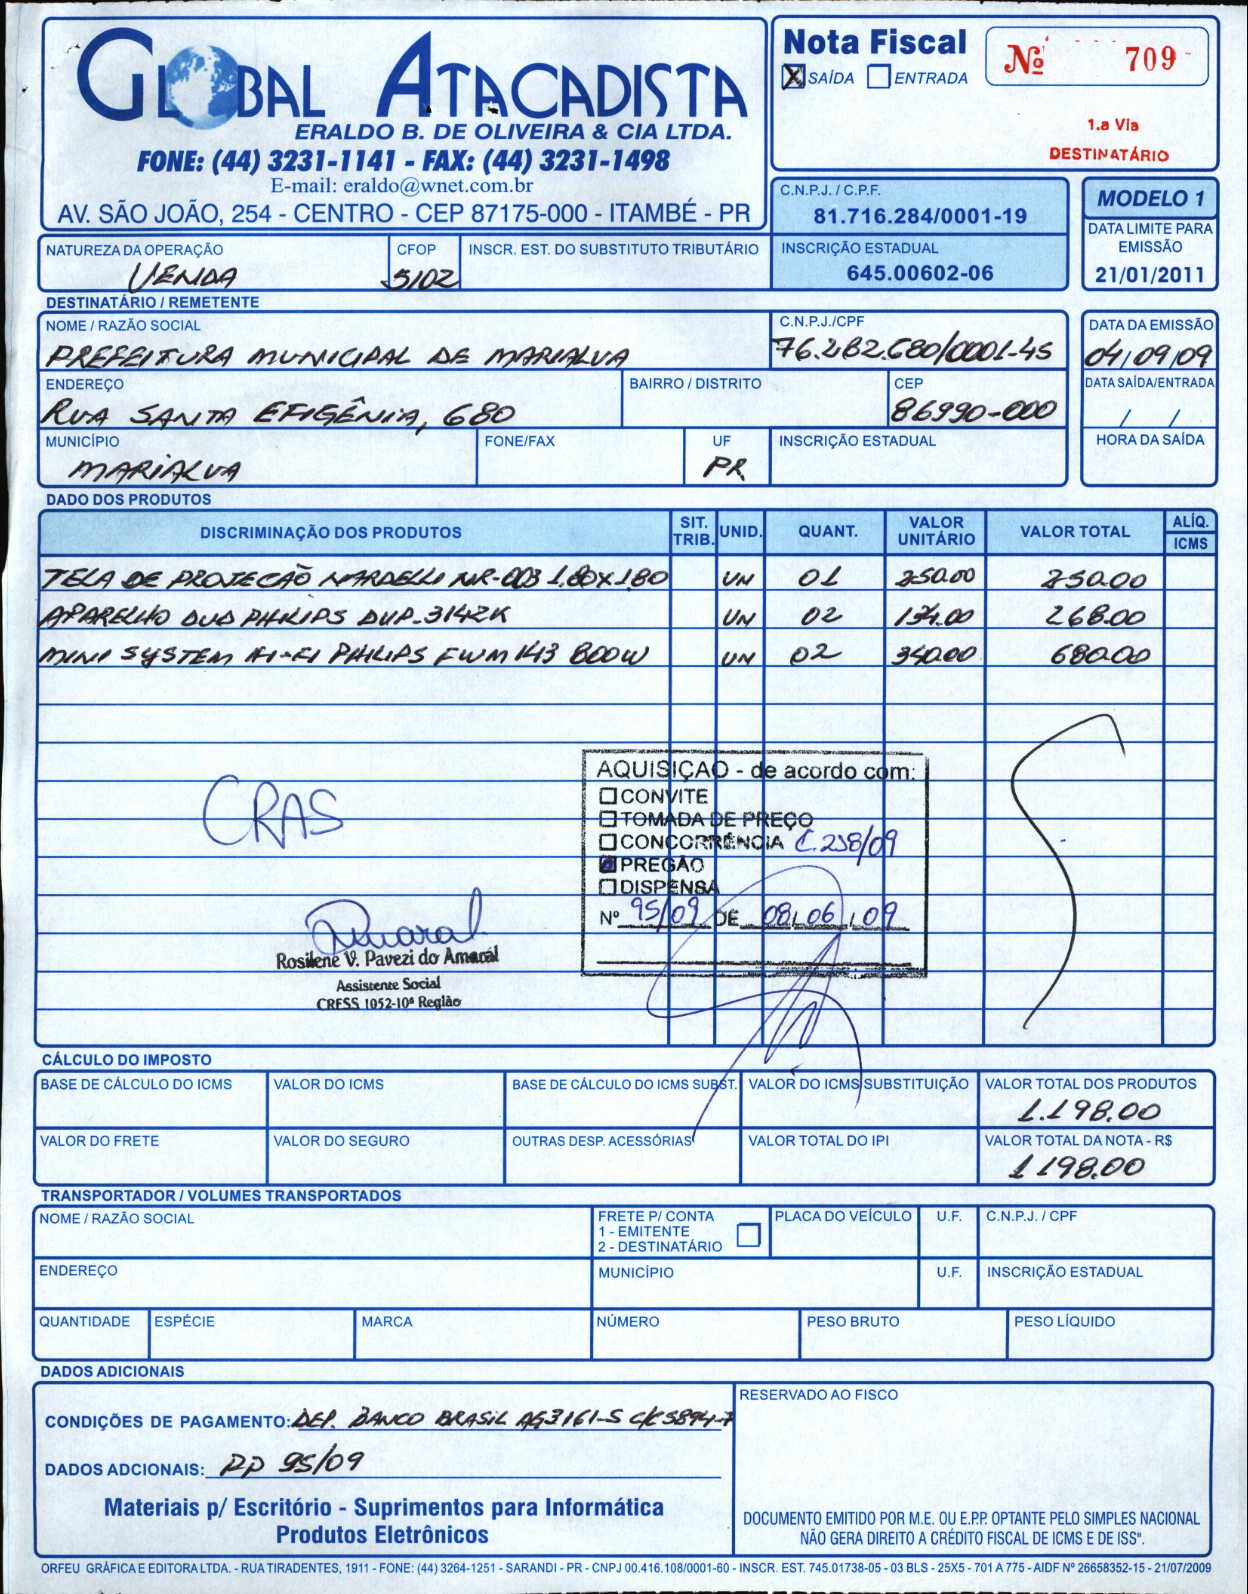 GLOBAL ATACADISTA
ERALDO B. DE OLIVEIRA & CIA LTDA.
FONE: (44) 3231-1141 - FAX: (44) 3231-1498
E-mail: eraldo@wnet.com.br
AV. SÃO JOÃO, 254 - CENTRO - CEP 87175-000 - ITAMBÉ - PR
Nota Fiscal
X SAÍDA ENTRADA
Nº 709
1.a Via
DESTINATÁRIO
C.N.P.J. / C.P.F.
81.716.284/0001-19
INSCRIÇÃO ESTADUAL
645.00602-06
MODELO 1
DATA LIMITE PARA
EMISSÃO
21/01/2011
NATUREZA DA OPERAÇÃO CFOP INSCR. EST. DO SUBSTITUTO TRIBUTÁRIO
VENDA 5102
DESTINATÁRIO / REMETENTE
NOME / RAZÃO SOCIAL C.N.P.J./CPF DATA DA EMISSÃO
PREFEITURA MUNICIPAL DE MARIALVA 76.282.680/0001-45 04/09/09
ENDEREÇO BAIRRO / DISTRITO CEP DATA SAÍDA/ENTRADA
RUA SANTA EFIGÊNIA, 680 86990-000 / /
MUNICÍPIO FONE/FAX UF INSCRIÇÃO ESTADUAL HORA DA SAÍDA
MARIALVA PR
DADO DOS PRODUTOS
DISCRIMINAÇÃO DOS PRODUTOS SIT. TRIB. UNID. QUANT. VALOR UNITÁRIO VALOR TOTAL ALÍQ. ICMS
TELA DE PROJEÇÃO NARDELLI NR-003 1.80X1.80 UN 01 250.00 250.00
APARELHO DVD PHILIPS DVP-3142K UN 02 134.00 268.00
MINI SYSTEM HI-FI PHILIPS FWM 143 800W UN 02 340.00 680.00
CRAS
AQUISIÇÃO - de acordo com:
CONVITE
TOMADA DE PREÇO
CONCORRÊNCIA C.238/09
PREGÃO
DISPENSA
Nº 95/09 DE 08/06/09
Amaral
Rosilene V. Pavezi do Amaral
Assistente Social
CRESS 1052-10ª Região
CÁLCULO DO IMPOSTO
BASE DE CÁLCULO DO ICMS VALOR DO ICMS BASE DE CÁLCULO DO ICMS SUBST. VALOR DO ICMS SUBSTITUIÇÃO VALOR TOTAL DOS PRODUTOS
1.198.00
VALOR DO FRETE VALOR DO SEGURO OUTRAS DESP. ACESSÓRIAS VALOR TOTAL DO IPI VALOR TOTAL DA NOTA - R$
1 198.00
TRANSPORTADOR / VOLUMES TRANSPORTADOS
NOME / RAZÃO SOCIAL FRETE P/ CONTA PLACA DO VEÍCULO U.F. C.N.P.J. / CPF
1 - EMITENTE
2 - DESTINATÁRIO
ENDEREÇO MUNICÍPIO U.F. INSCRIÇÃO ESTADUAL
QUANTIDADE ESPÉCIE MARCA NÚMERO PESO BRUTO PESO LÍQUIDO
DADOS ADICIONAIS
CONDIÇÕES DE PAGAMENTO: DEP. BANCO BRASIL AG3161-5 C/C5894-7
RESERVADO AO FISCO
DADOS ADCIONAIS: PP 95/09
Materiais p/ Escritório - Suprimentos para Informática
Produtos Eletrônicos
DOCUMENTO EMITIDO POR M.E. OU E.P.P. OPTANTE PELO SIMPLES NACIONAL
NÃO GERA DIREITO A CRÉDITO FISCAL DE ICMS E DE ISS".
ORFEU GRÁFICA E EDITORA LTDA. - RUA TIRADENTES, 1911 - FONE: (44) 3264-1251 - SARANDI - PR - CNPJ 00.416.108/0001-60 - INSCR. EST. 745.01738-05 - 03 BLS - 25X5 - 701 A 775 - AIDF Nº 26658352-15 - 21/07/2009